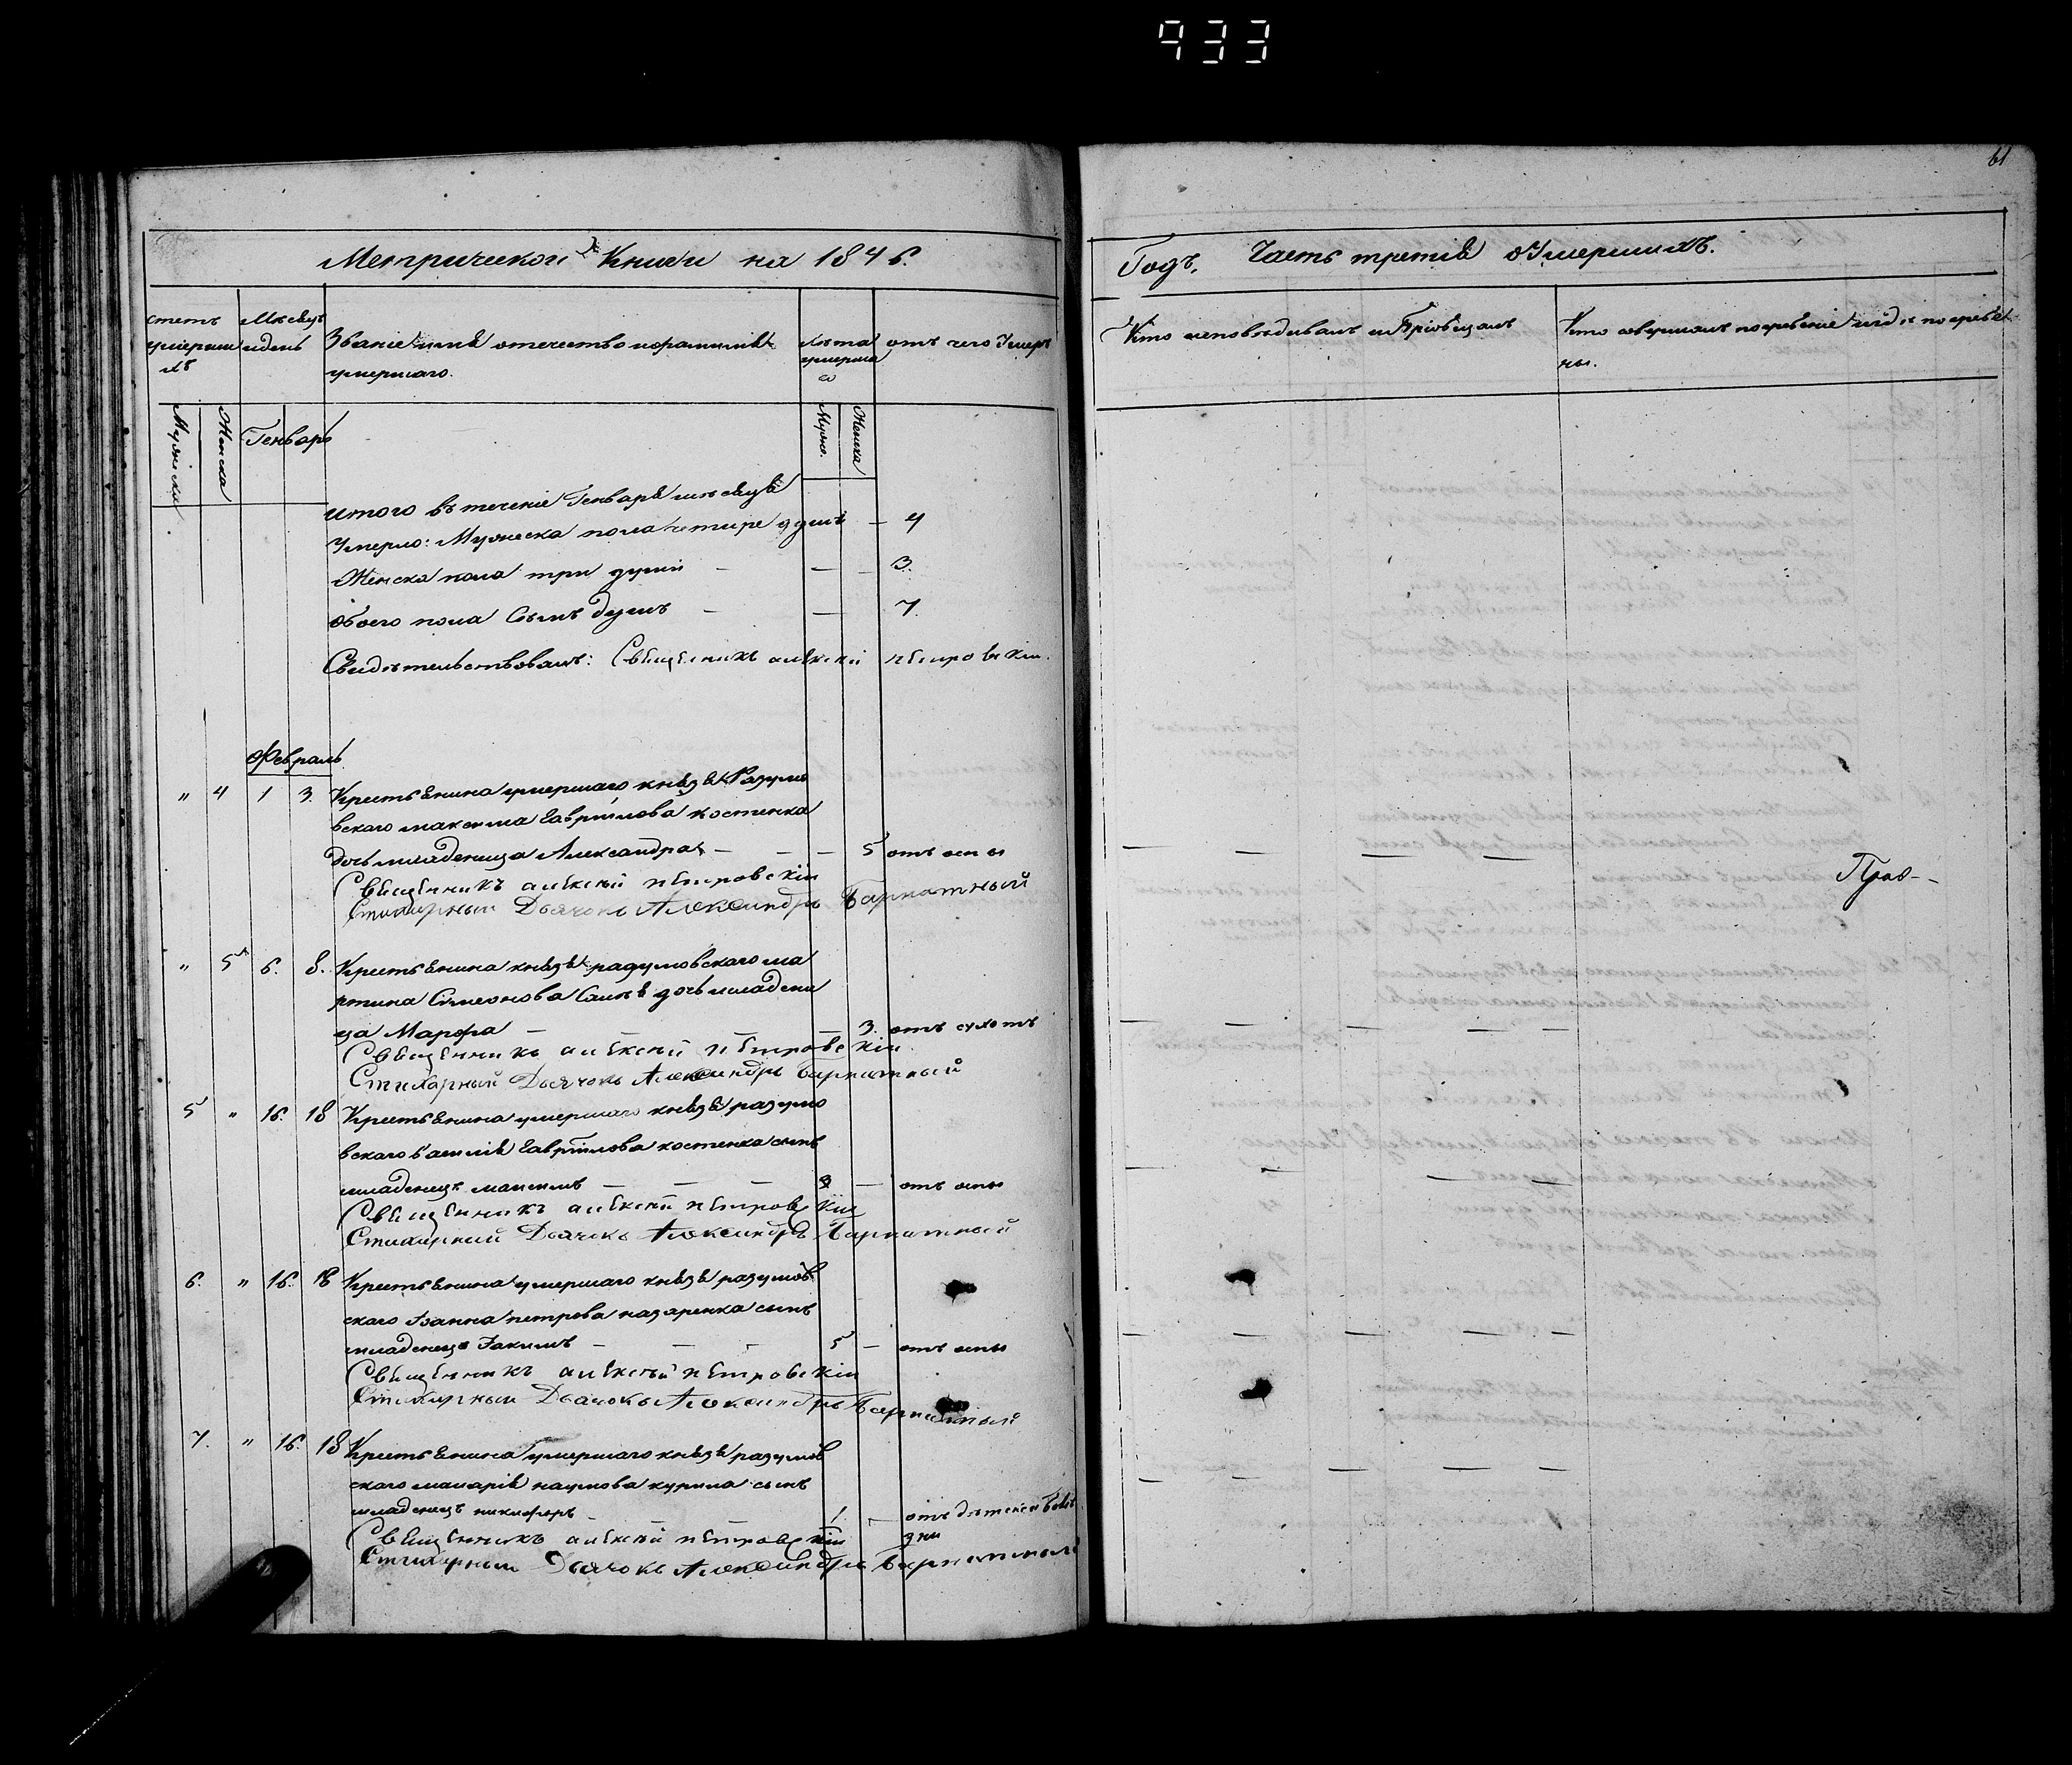 933
61
Метрической Книги на 1846.
Годъ, Часть третія оУмершихъ.
счетъ
умерши
хъ
Мѣсяцъ
идень
Званіе имя отечество ифамилія
умершаго.
лѣта
умерша
го
отъ чего Умеръ
Кто исповѣдивалъ иПріобщалъ
Кто совершалъ погребеніе игдѣ погребе
ны.
Мужеска
Женска
Генварь
Мужес.
Женска
итого въ теченіе Генваря мѣсяца
Умерло: Мужеска пола четире душъ — 4
Женска пола три души — — — 3.
обоего пола Семь душъ — — 7.
Свидѣтельствовалъ: Священикъ алексѣй петровскій.
Февраль
" 4 1 3. Крестьянина умершаго князя Разумо
вскаго максима Гавріилова костенка
дочь младеница Александра — — — 5 отъ оспы
Священникъ алексѣй петровскій
Стихарный Дьячокъ Александръ Бархатный
Прав--
" 5 6. 8. Крестьянина князя разумовскаго ма
ртина Симеонова дочь младени
ца Марфа — — — — 3. отъ сухотъ
Священникъ алексѣй петровскій
Стихарный Дьячокъ Александръ Бархатный
5 " 16. 18 Крестьянина умершаго князя разумо
вскаго василія Гавріилова костенка сынъ
младенецъ максимъ — — — 3 — отъ оспы
Священникъ алексѣй петровскій
Стихарный Дьячокъ Александръ Бархатный
6. " 16. 18 Крестьянина умершаго князя разумов
скаго Іоанна петрова назаренка сынъ
младенецъ Іакимъ — — — 5 — отъ оспы
Священникъ алексѣй петровскій
Стихарный Дьячокъ Александръ Бархатный
7. " 16. 18 Крестьянина умершаго князя разумов
скаго макарія наумова курила сынъ
младенецъ никифоръ — — 1 — отъ дѣтской болѣ
зни
Священникъ алексѣй петровскій
Стихарный Дьячокъ Александръ Бархатный